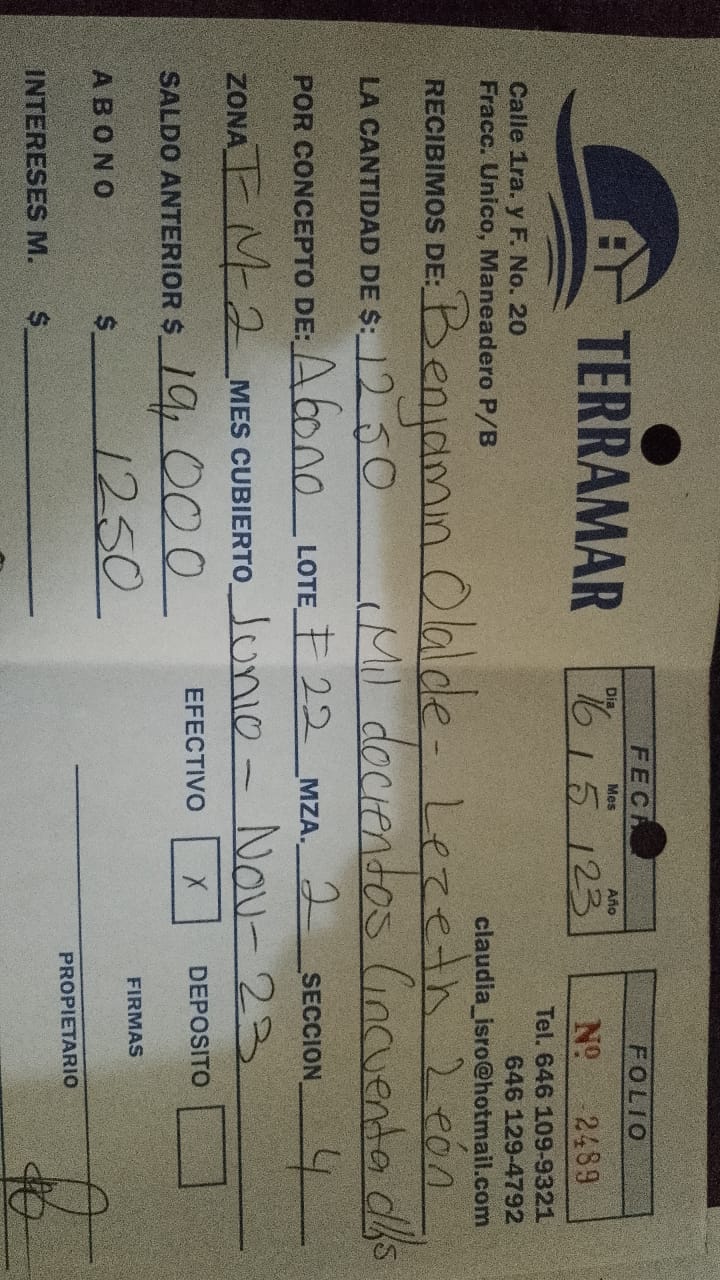 TERRAMAR
FECHA
Dia Mes Año
16 / 5 / 23
FOLIO
Nº 2489
Calle 1ra. y F. No. 20
Fracc. Unico, Maneadero P/B
Tel. 646 109-9321
646 129-4792
claudia_isro@hotmail.com
RECIBIMOS DE: Benjamin Olalde - Lezeth León
LA CANTIDAD DE $: 1250 (Mil docientos Cincuenta dlls
POR CONCEPTO DE: Abono LOTE F 22 MZA. 2 SECCION 4
ZONA T-M-2 MES CUBIERTO Junio - Nov-23
SALDO ANTERIOR $ 19,000 EFECTIVO X DEPOSITO
ABONO $ 1250 FIRMAS
INTERESES M. $ PROPIETARIO